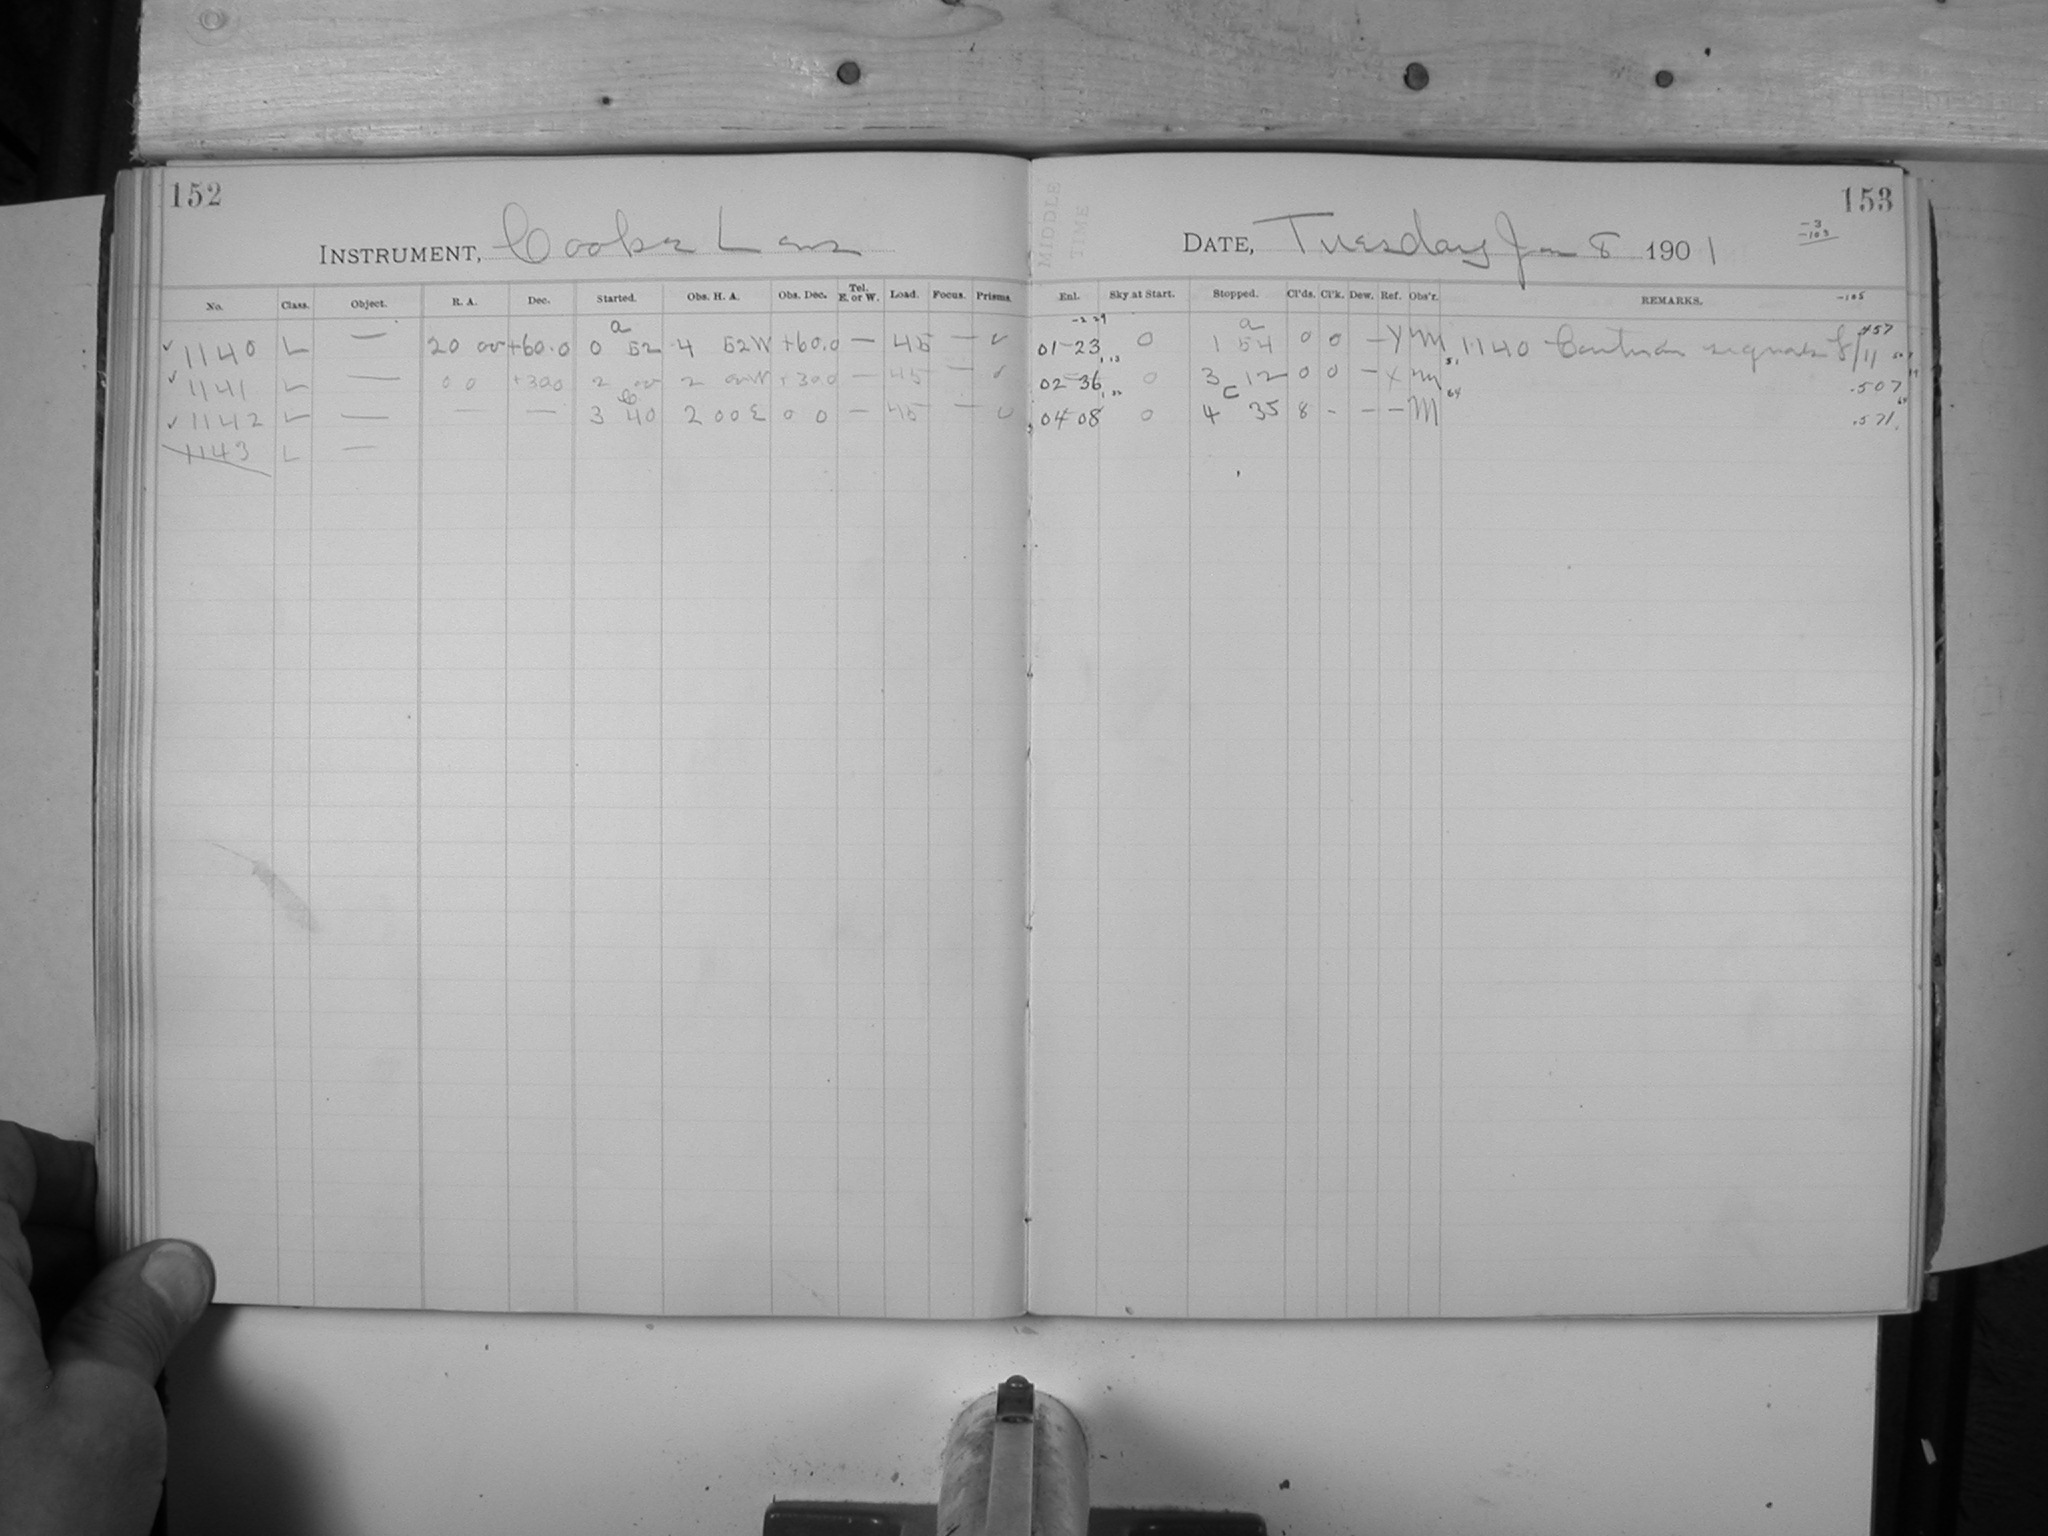 152
INSTRUMENT, Cooke Lens
No. Class. Object. R. A. Dec. Started. Obs. H. A. Obs. Dec. Tel. E. or W. Load. Focus. Prisms.
a
✓ 1140 L — 20 00 +60.0 0 52 4 52W +60.0 — 45 — 0
✓ 1141 L — 0 0 +30.0 2 00 2 00W +30.0 — 45 — 0
✓ 1142 L — — — 3 40 2 00E 0 0 — 45 — 0
1143 L —
MIDDLE TIME
153
-3
-103
DATE, Tuesday Jan 8 1901
Enl. Sky at Start. Stopped. Cl'ds. Cl'k. Dew. Ref. Obs'r. REMARKS. -105
-229 a
01-23 0 1 54 0 0 — Y M 1140 f/11 457
02-36 0 3 12 0 0 — X M .507
04-08 0 4 35 8 - - - M .571